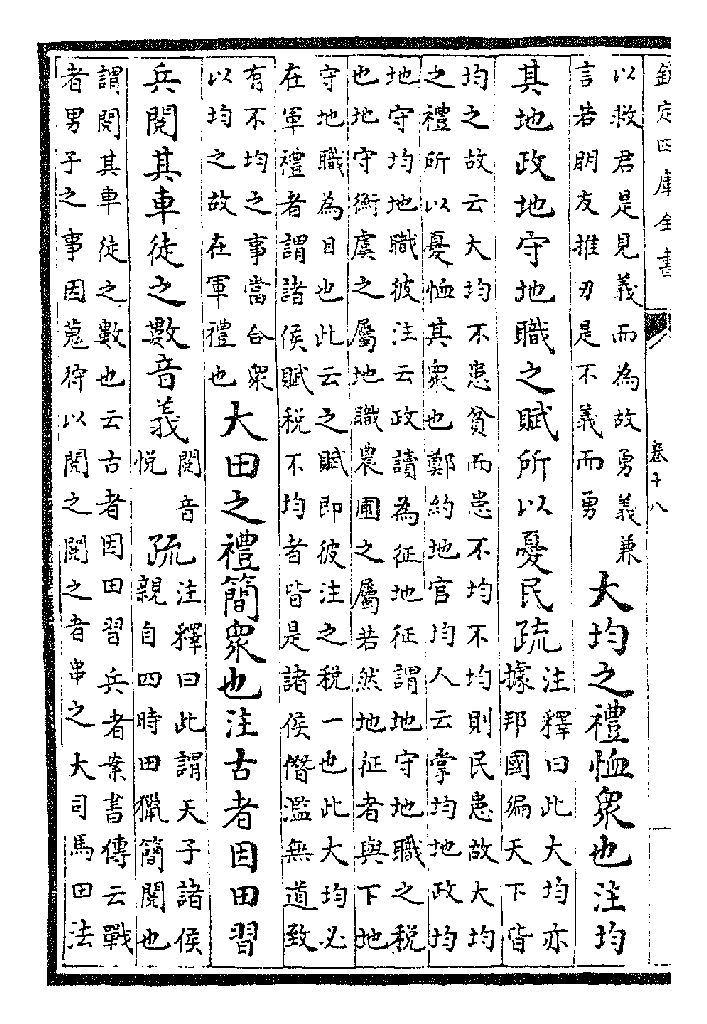 欽定四庫全書
卷十八
以救君是見義而為故勇義兼
言若朋友推刃是不義而勇
大均之禮恤衆也注均
其地政地守地職之賦所以憂民疏
注釋曰此大均亦
據邦國徧天下皆
均之故云大均不患貧而患不均不均則民患故大均
之禮所以憂恤其衆也鄭約地官均人云掌均地政均
地守均地職彼注云政讀為征地征謂地守地職之税
也地守衡虞之屬地職農圃之屬若然地征者與下地
守地職為目也此云之賦即彼注之税一也此大均必
在軍禮者謂諸侯賦税不均者皆是諸侯僭濫無道致
有不均之事當合衆
以均之故在軍禮也
大田之禮簡衆也注古者因田習
兵閱其車徒之數音義
閱音
悦
疏
注釋曰此謂天子諸侯
親自四時田獵簡閱也
謂閱其車徒之數也云古者因田習兵者案書傳云戰
者男子之事因蒐狩以閱之閱之者串之大司馬田法